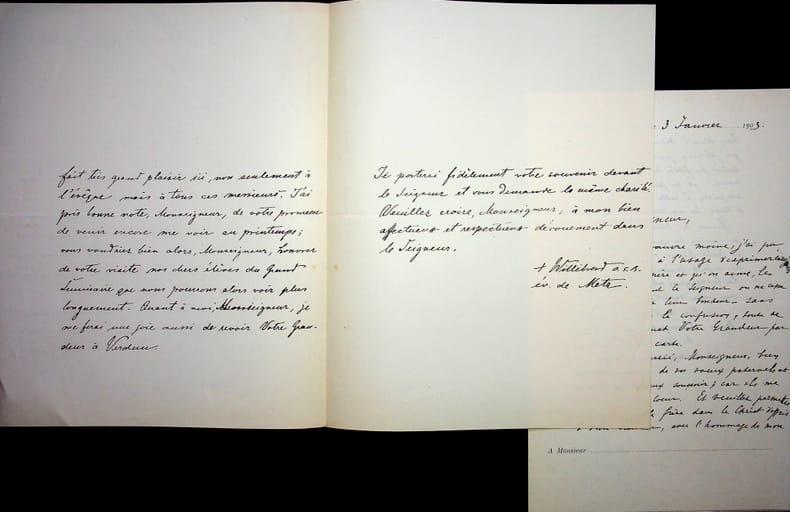 fait très grand plaisir ici, non seulement à
l'évêque mais à tous ces messieurs. J'ai
pris bonne note, Monseigneur, de votre promesse
de venir encore me voir au printemps;
vous voudriez bien alors, Monseigneur, honorer
de votre visite nos chers élèves du Grand
Séminaire que nous pourrons alors voir plus
longuement. Quant à moi, Monseigneur, je
me ferai une joie aussi de revoir Votre Gran-
deur à Verdun.
Je porterai fidèlement votre souvenir devant
le Seigneur et vous demande la même charité.
Veuillez croire, Monseigneur, à mon bien
affectueux et respectueux dévouement dans
le Seigneur.
+ Willibrord o.s.b.
év. de Metz.
3 Janvier 1903.
neur,
moine, j'ai pu
à l'usage
et qu'on aime, les
le Seigneur ou ne
leur bonheur sans
la confusion, toute de
Votre Grandeur par
carte.
Monseigneur, bien
de vos vœux paternels et
souvenir; car ils me
cœur. Et veuillez permettre
frère dans le Christ
avec l'hommage de mon
A Monsieur